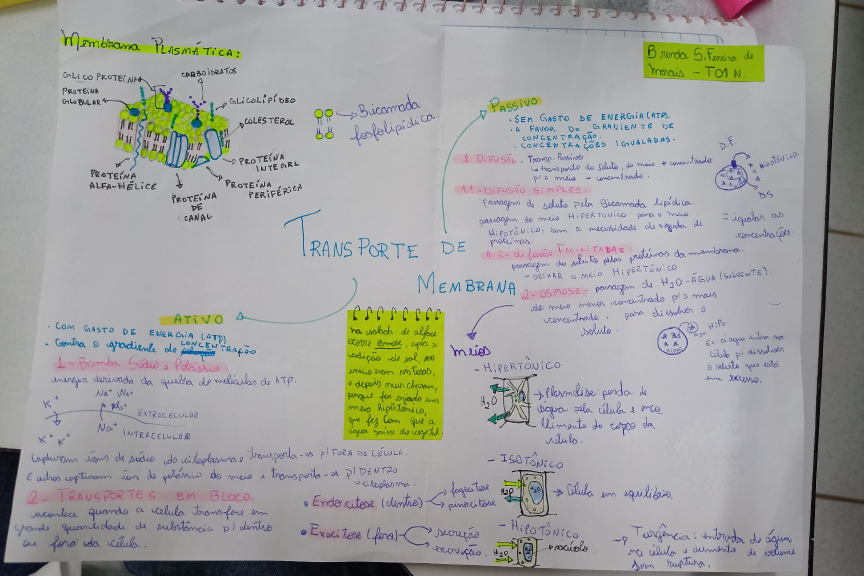 Membrana Plasmática:
GLICOPROTEÍNA
CARBOIDRATOS
PROTEÍNA GLOBULAR
GLICOLIPÍDEO
COLESTEROL
PROTEÍNA INTEGRL
PROTEÍNA PERIFÉRICA
PROTEÍNA DE CANAL
PROTEÍNA ALFA-HÉLICE
Bicamada
fosfolipídica.
Morais - T01N.
TRANSPORTE DE
MEMBRANA
PASSIVO
• SEM GASTO DE ENERGIA (ATP).
• A FAVOR DO GRADIENTE DE
CONCENTRAÇÃO.
• CONCENTRAÇÕES IGUALADAS.
1. DIFUSÃO: Transp. Passivo
↳ transporte do soluto, do meio + concentrado
p/o meio - concentrado.
1.1 - DIFUSÃO SIMPLES.
Passagem de soluto pela Bicamada lipídica.
passagem do meio HIPERTÔNICO para o meio
HIPOTÔNICO, sem a necessidade de ajuda de
proteínas.
D.F.
HIPOTÔNICA
D.S
= igualar as
concentrações.
1.2 - difusão FACILITADA:
passagem do soluto pelas proteínas da membrana.
→ DEIXAR O MEIO HIPERTÔNICO
2 - OSMOSE - passagem de H₂O - ÁGUA (SOLVENTE).
do meio menos concentrado p/o mais
concentrado, para dissolver o
soluto.
H₂O
HIPO.
Ex: a água entra na
célula p/ dissolver
o soluto que está
em excesso.
ATIVO
• COM GASTO DE ENERGIA (ATP)
• Contra o gradiente de CONCENTRAÇÃO
1 - Bomba Sódio e Potássio
energia derivada da quebra de moléculas de ATP.
K⁺ Na⁺ Na⁺
EXTRACELULAR
K⁺ K⁺ Na⁺ INTRACELULAR
Capturam íons de sódio do citoplasma e transporta-os p/ FORA DE CÉLULA.
E ados capturam íons de potássio do meio e transporta-os p/ DENTRO
citoplasma.
2 - TRANSPORTES EM BLOCO.
acontece quando a célula transfere em
grande quantidade de substância p/ dentro
ou fora da célula.
• Endocitose (dentro) fagocitose
pinocitose
• Exocitose (fora) secreção
excreção.
na salada de alface
ocorre osmose, após a
adição de sal, no
e depois murcharam,
porque foi criado um
meio hipertônico,
que fez com que a
água saisse do vegetal.
meios
- HIPERTÔNICO
H₂O
→ Plasmólise: perda de
água pela célula e enco
lhimento do corpo da
célula.
- ISOTÔNICO
H₂O
→ Célula em equilíbrio.
- HIPOTÔNICO
H₂O
vacúolo
→ Turgência: entrada de água
na célula e aumento de volume
sem ruptura.